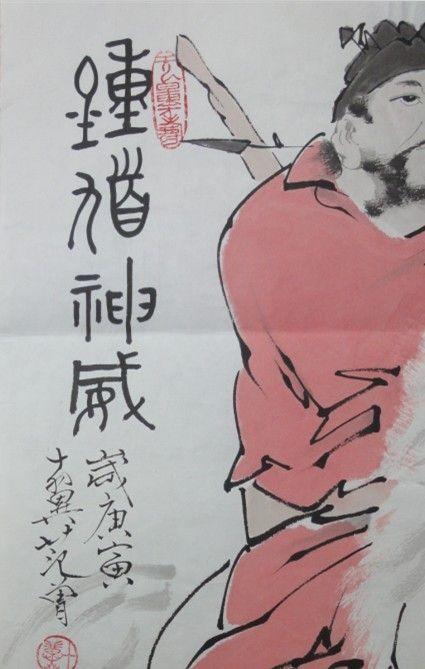 鍾馗神威
歲庚寅
十翼范曾